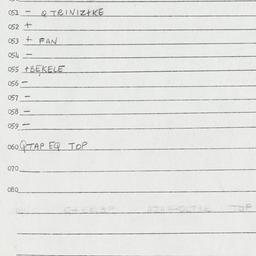 051 - Q TRINIZ+KE
052 +
053 + FAN
054 -
055 +BEKELE
056 -
057 -
058 -
059 -
060 QTAP EQ TOP
070
080